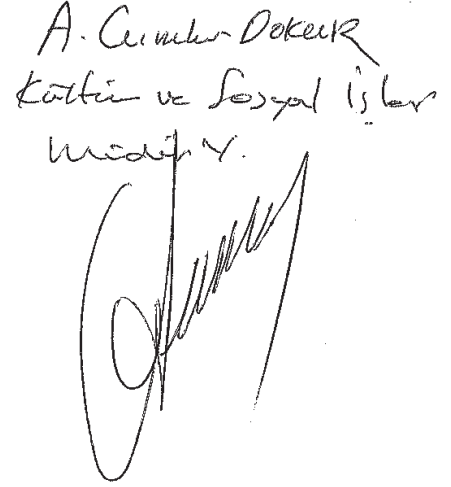 A. Cumhur DOKUR
Kültür ve Sosyal İşler
Müdür Y.